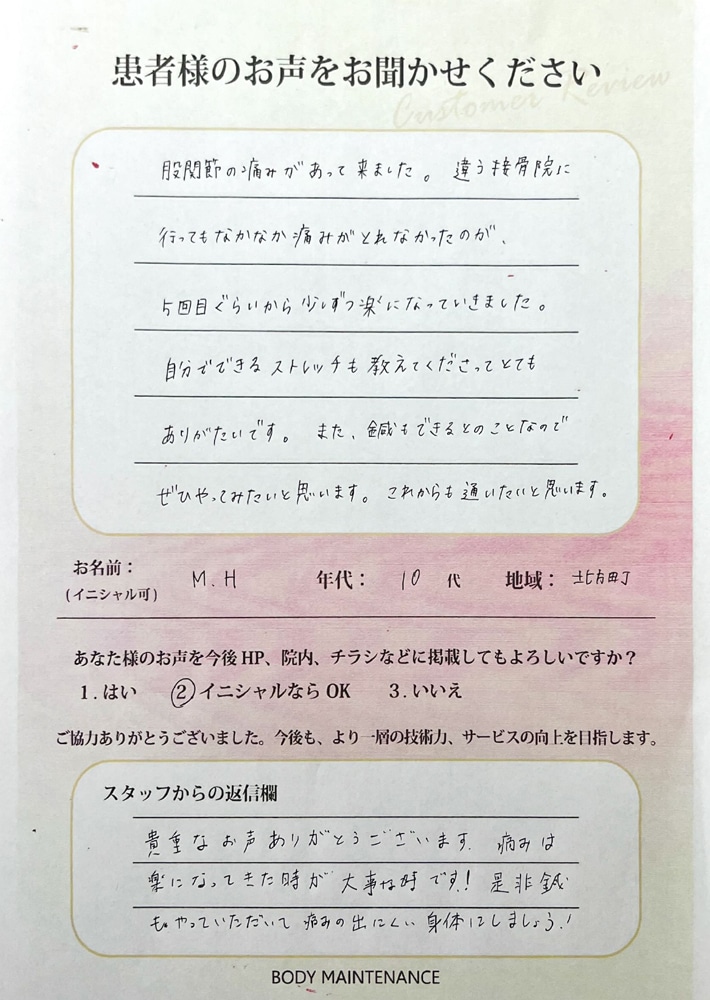 患者様のお声をお聞かせください
Customer Review
股関節の痛みがあって来ました。 違う接骨院に
行ってもなかなか痛みがとれなかったのが、
5回目ぐらいから少しずつ楽になっていきました。
自分でできるストレッチも教えてくださってとても
ありがたいです。 また、鍼もできるとのことなので
ぜひやってみたいと思います。 これからも通いたいと思います。
お名前: M.H 年代: 10 代 地域: 北方町
(イニシャル可)
あなた様のお声を今後HP、院内、チラシなどに掲載してもよろしいですか?
1.はい ②イニシャルならOK 3.いいえ
ご協力ありがとうございました。今後も、より一層の技術力、サービスの向上を目指します。
スタッフからの返信欄
貴重なお声ありがとうございます. 痛みは
楽になってきた時が大事な時です! 是非鍼
もやっていただいて痛みの出にくい身体にしましょう!
BODY MAINTENANCE